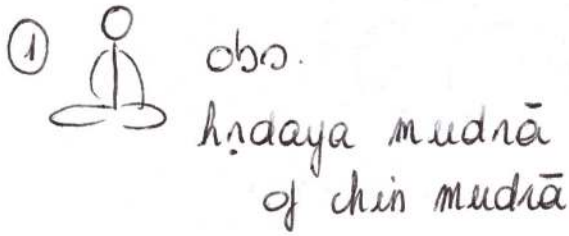 1 obs.
hṛdaya mudrā
of chin mudrā